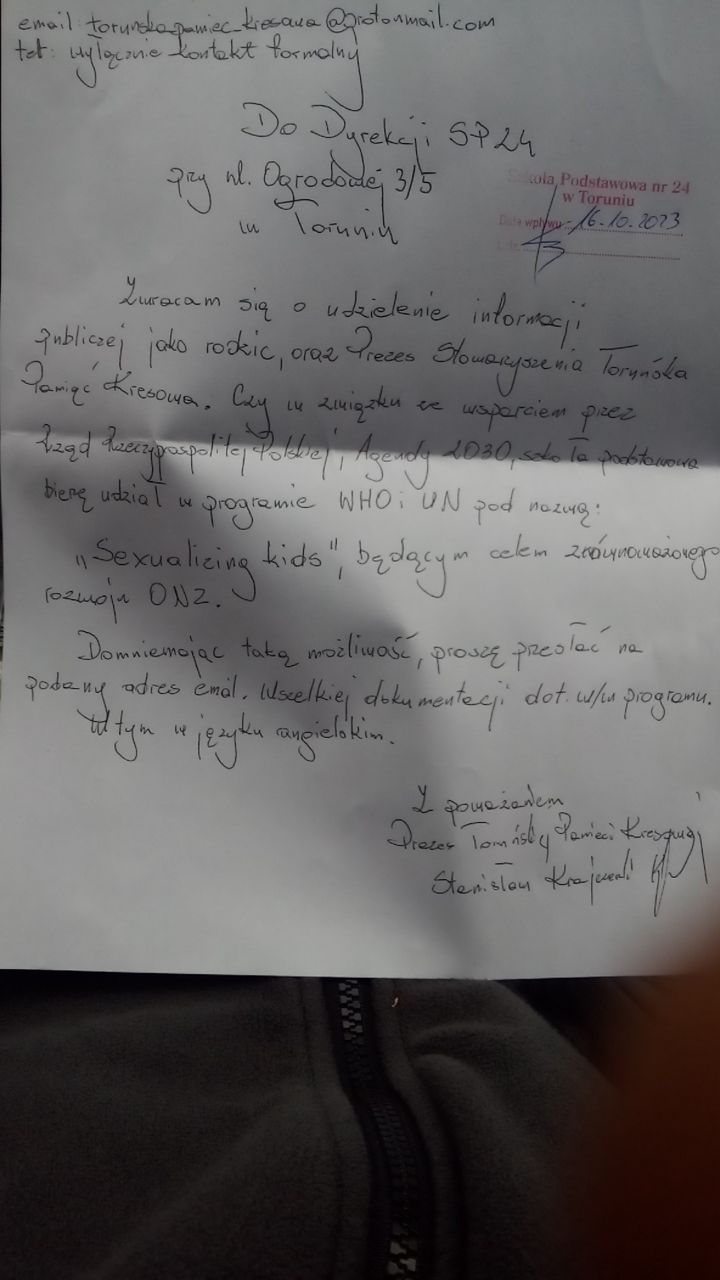 email: torunska_pamiec_kresowa@protonmail.com
tel: wyłącznie kontakt formalny
Do Dyrekcji SP 24
przy ul. Ogrodowej 3/5
w Toruniu
Szkoła Podstawowa nr 24
w Toruniu
Data wpływu 16.10.2023
Zwracam się o udzielenie informacji
publiczej jako rodzic, oraz Prezes Stowarzyszenia Toruńska
Pamięć Kresowa. Czy w związku ze wsparciem przez
Rząd Rzeczypospolitej Polskiej, Agendy 2030, szkoła podstawowa
bierze udział w programie WHO i UN pod nazwą:
"Sexualizing kids", będącym celem zrównoważonego
rozwoju ONZ.
Domniemając taką możliwość, proszę przesłać na
podany adres emal. Wszelkiej dokumentacji dot. w/w programu.
W tym w języku angielskim.
Z poważaniem
Prezes Toruńskiej Pamięci Kresowej
Stanisław